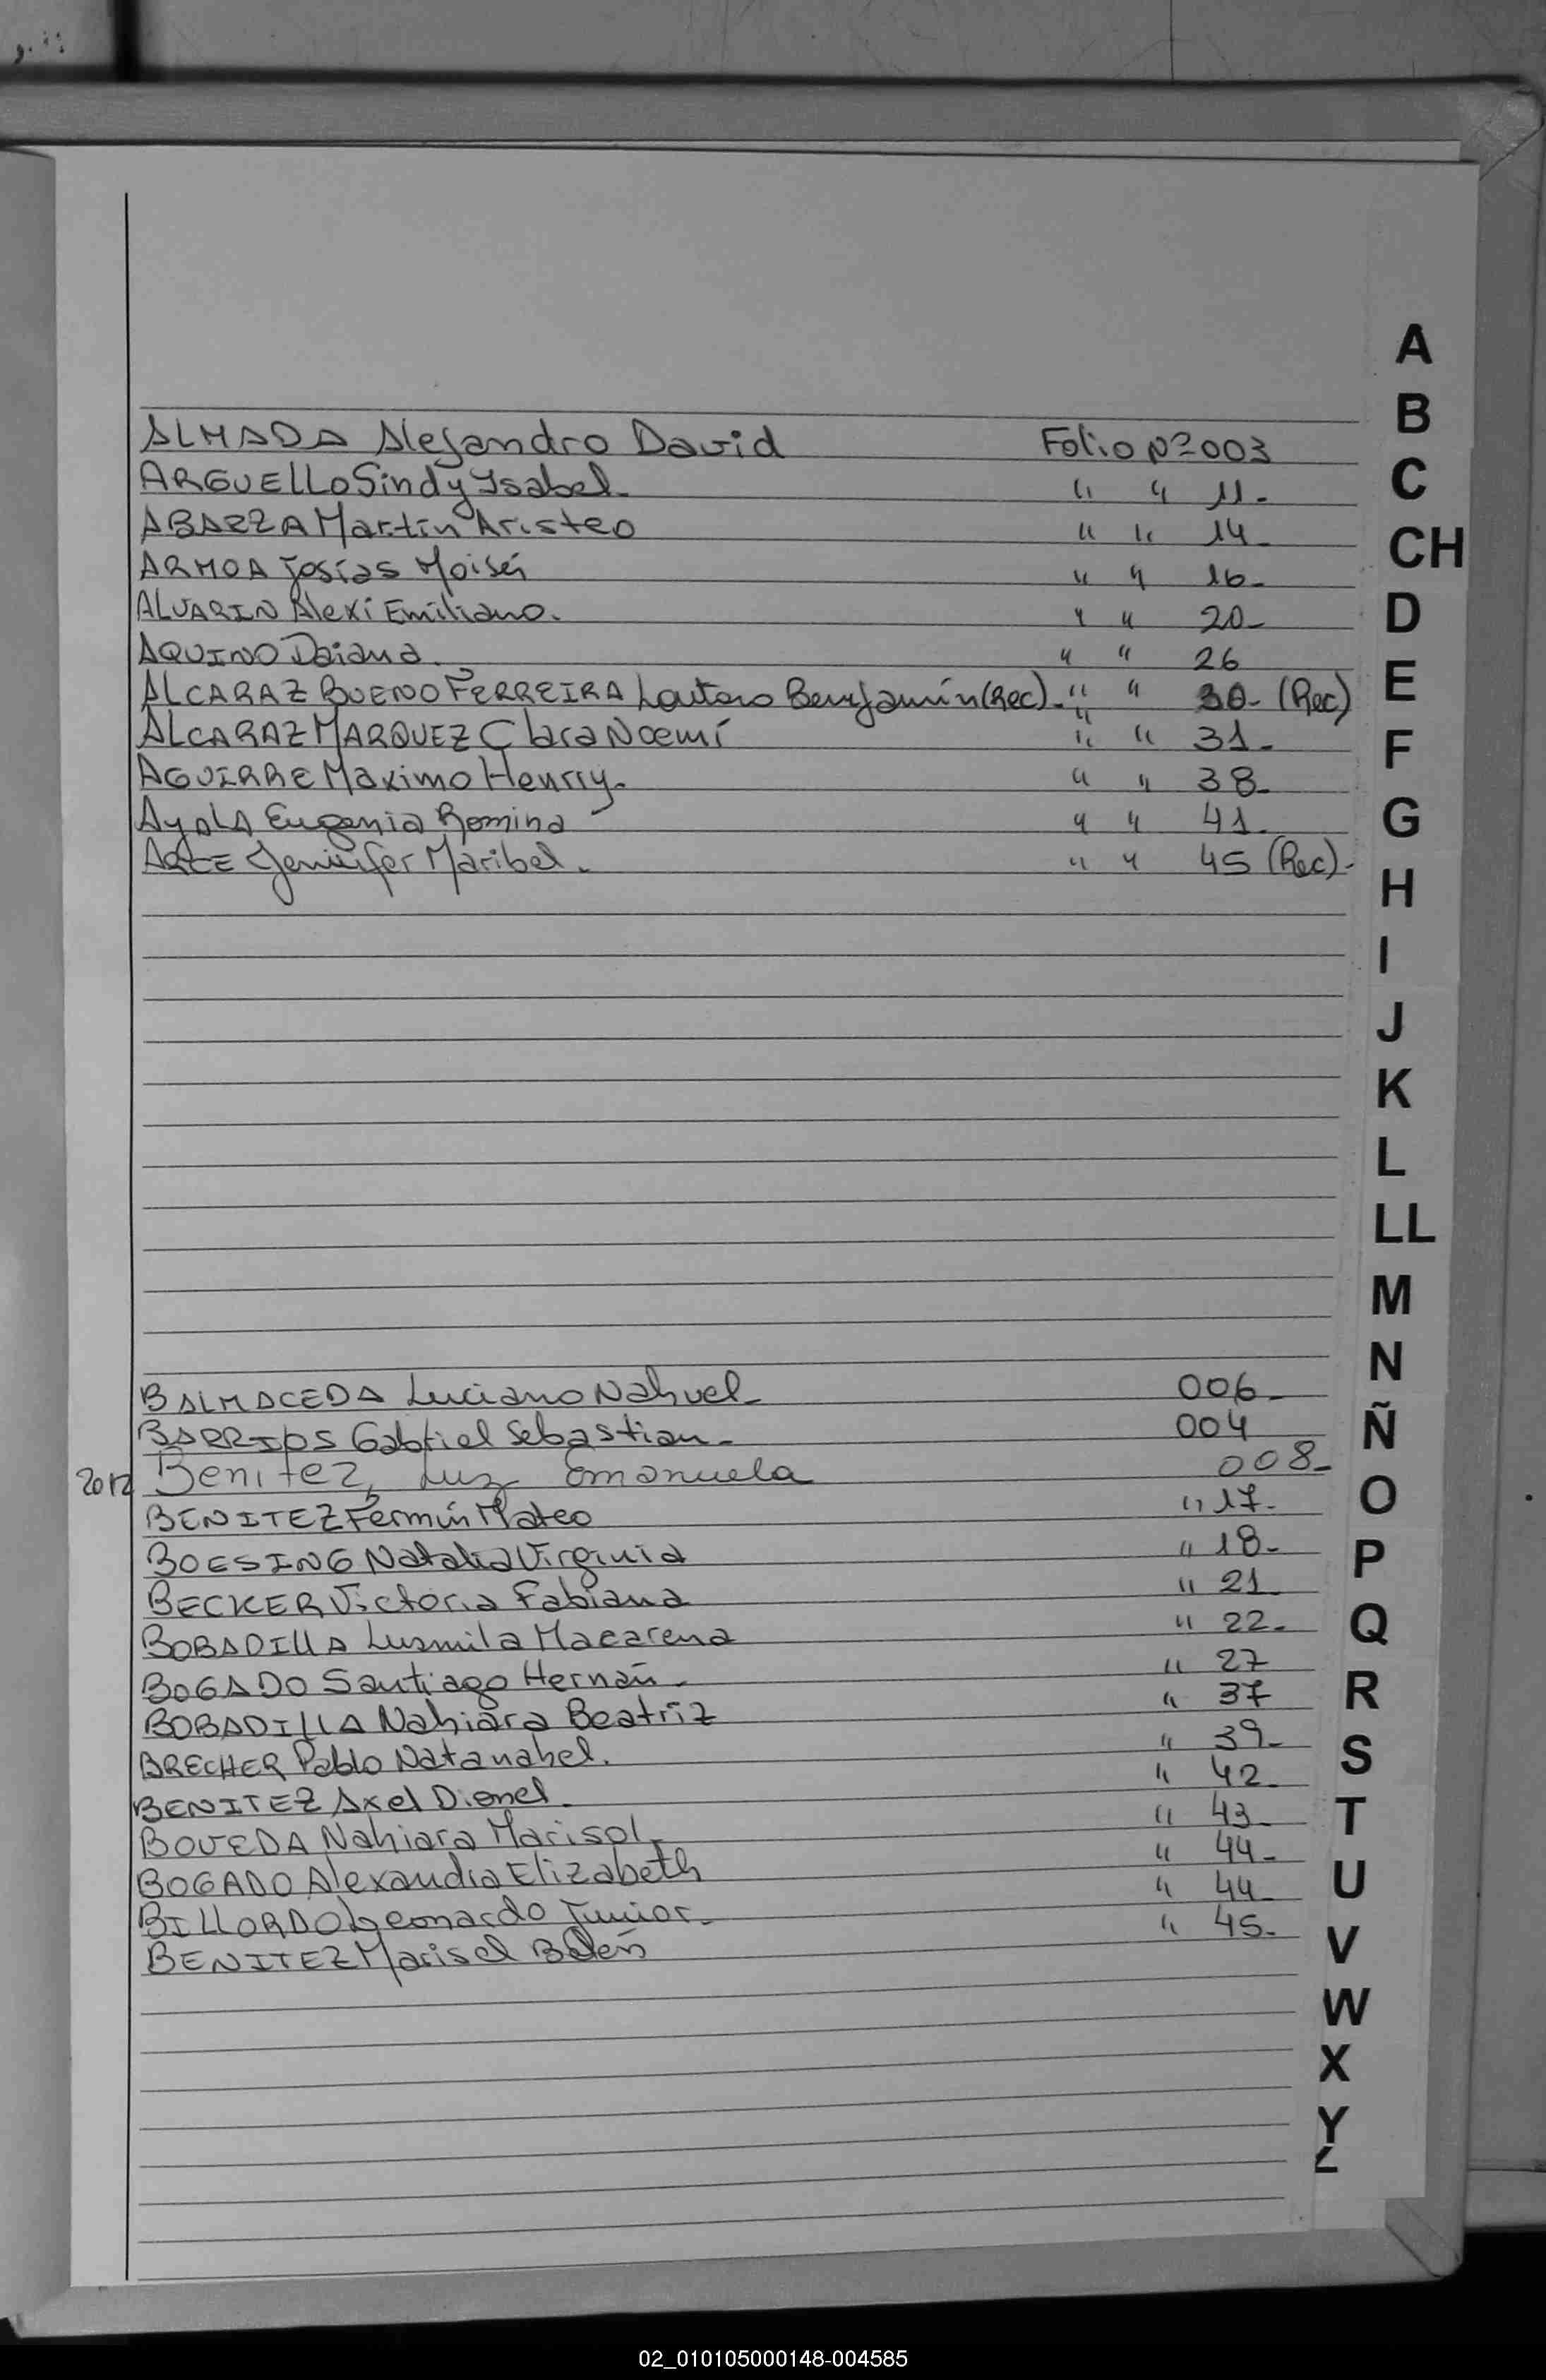 ALMADA Alejandro David Folio Nº 003
ARGUELLO Sindy Ysabel. " " 11.
ABARZA Martín Aristeo " " 14.
ARMOA Josías Moisés " " 16.
ALVARIN Alexi Emiliano. " " 20.
AQUINO Daiana. " " 26
ALCARAZ BUENO FERREIRA Lautaro Benjamín (Rec). " " 30. (Rec)
ALCARAZ MARQUEZ Clara Noemí " " 31.
AGUIRRE Maximo Henrry. " " 38.
AYALA Eugenia Romina " " 41.
ARCE Jennifer Maribel. " " 45 (Rec).
BALMACEDA Luciano Nahuel. 006.
BARRIOS Gabriel Sebastian. 004
2012 Benitez, Luz Emanuela 008.
BENITEZ Fermín Mateo " 17.
BOESING Natalia Virginia " 18.
BECKER Victoria Fabiana " 21.
BOBADILLA Luzmila Macarena " 22.
BOGADO Santiago Hernán. " 27
BOBADILLA Nahiara Beatriz " 37
BRECHER Pablo Natanahel. " 39.
BENITEZ Axel Dionel. " 42.
BOVEDA Nahiara Marisol. " 43.
BOGADO Alexandra Elizabeth " 44.
BILLORDO Leonardo Junior. " 44.
BENITEZ Marisel Belén " 45.
A
B
C
CH
D
E
F
G
H
I
J
K
L
LL
M
N
Ñ
O
P
Q
R
S
T
U
V
W
X
Y
Z
02_010105000148-004585